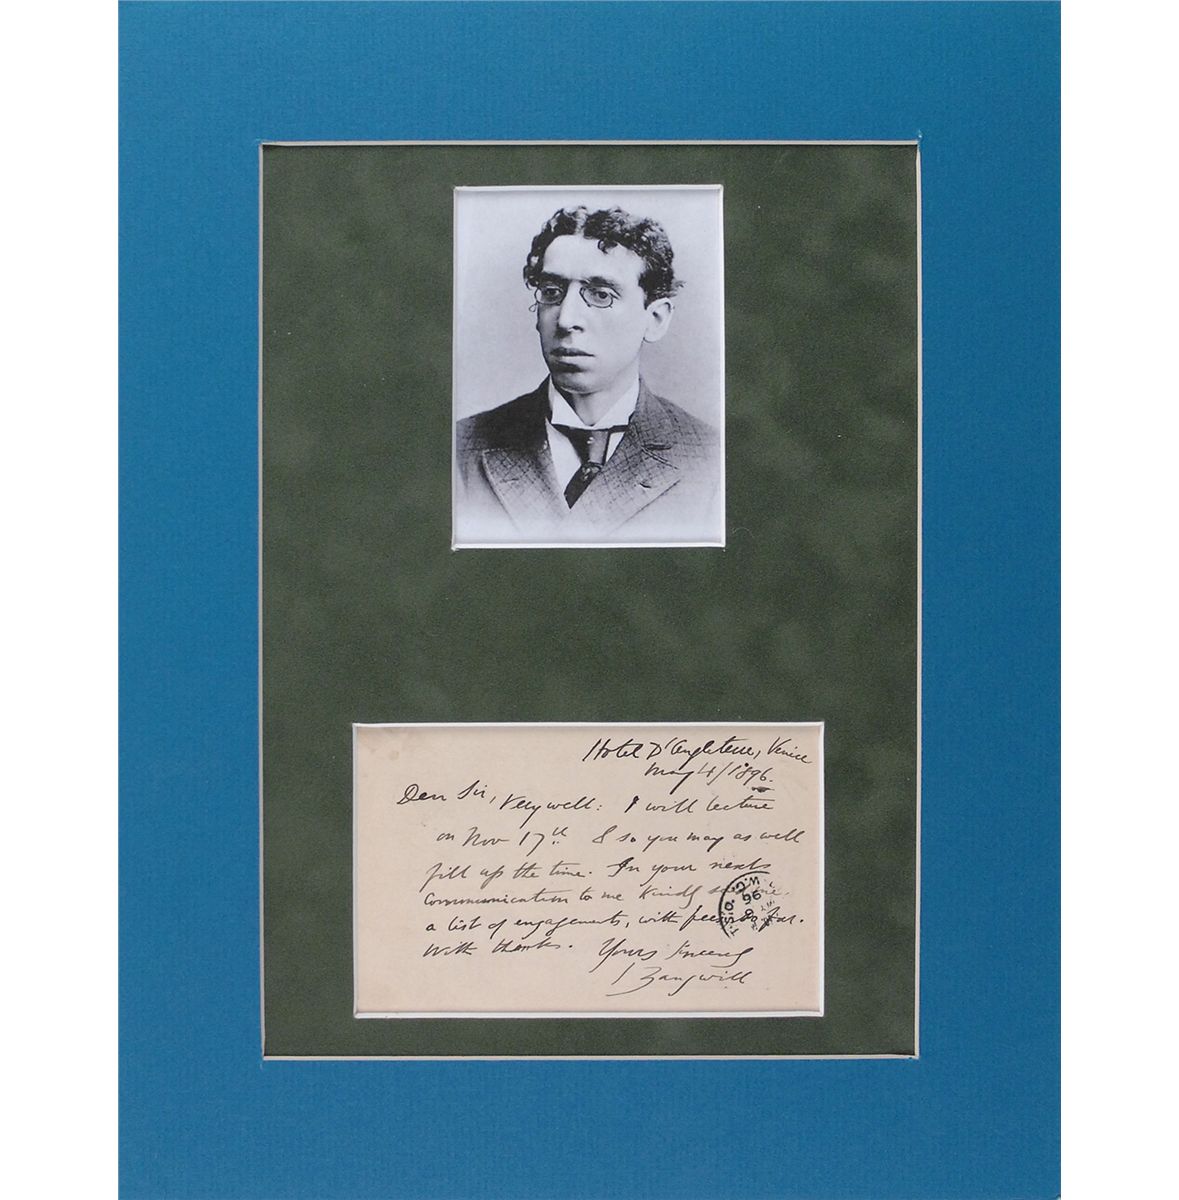 Hotel D'Angleterre, Venice
May 4/1896.
Dear Sir, Very well: I will lecture
on Nov 17th & so you may as well
fill up the time. In your next
communication to me kindly me
a list of engagements, with fees so far.
With thanks. Yours sincerely
I Zangwill
W.C.
96